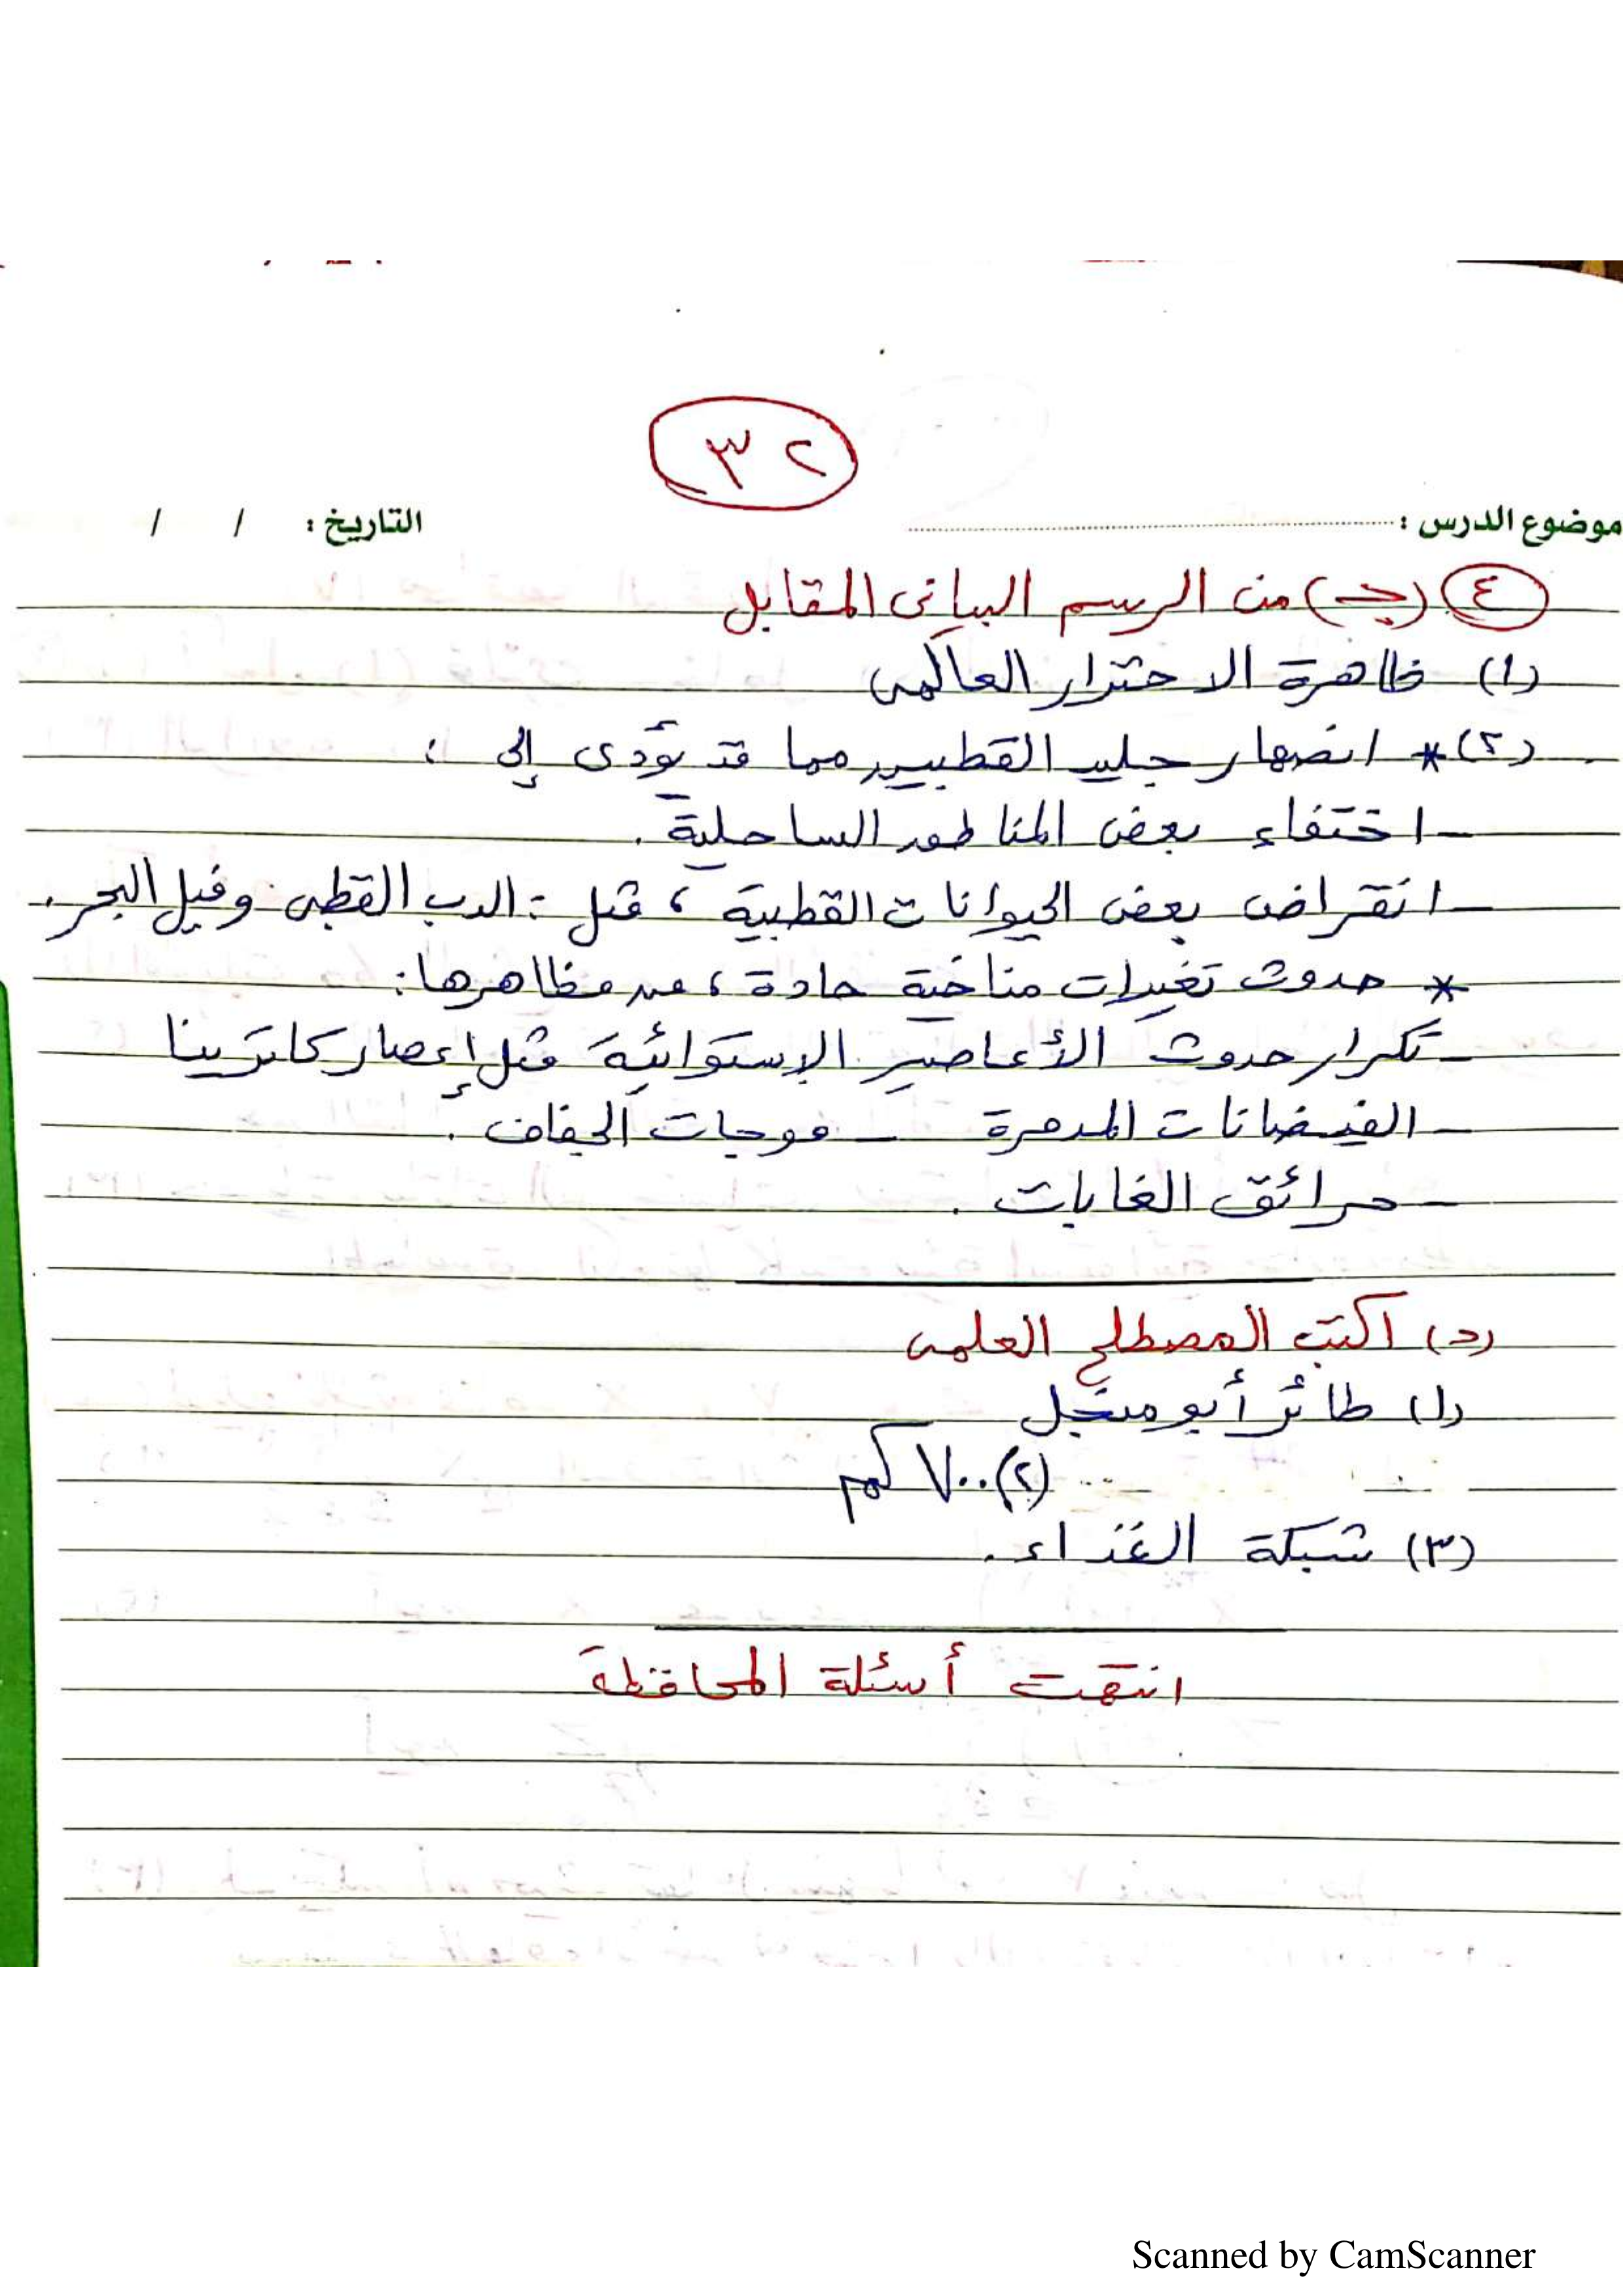 ٣٢
موضوع الدرس : التاريخ : / /
٤ (جـ) من الرسم البيانى المقابل
(١) ظاهرة الاحترار العالمى
(٢) * انصهار جليد القطبين مما قد يؤدى إلى :
- اختفاء بعض المناطق الساحلية .
- انقراض بعض الحيوانات القطبية ، مثل : الدب القطبى وفيل البحر .
* حدوث تغيرات مناخية حادة ، من مظاهرها :
- تكرار حدوث الأعاصير الإستوائية مثل إعصار كاترينا
- الفيضانات المدمرة - موجات الجفاف .
- حرائق الغابات .
(د) اكتب المصطلح العلمى
(١) طائر أبو منجل
(٢) ٧٠٠ كم
(٣) شبكة الغذاء .
انتهت أسئلة المحافظة
Scanned by CamScanner